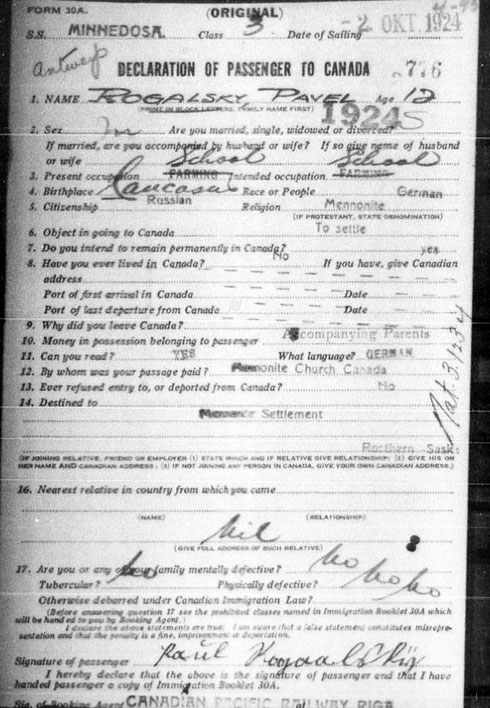 FORM 30A.
(ORIGINAL)
S.S. MINNEDOSA. Class 3 Date of Sailing -2 OKT 1924
Antwerp DECLARATION OF PASSENGER TO CANADA 776
1. NAME ROGALSKY PAVEL Age 12
(PRINT IN BLOCK LETTERS, FAMILY NAME FIRST) 1924 S
2. Sex m Are you married, single, widowed or divorced?
If married, are you accompanied by husband or wife? If so give name of husband
or wife School School
3. Present occupation FARMING Intended occupation. FARMING
4. Birthplace Caucasus Race or People German
5. Citizenship Russian Religion Mennonite
(IF PROTESTANT, STATE DENOMINATION)
6. Object in going to Canada To settle
7. Do you intend to remain permanently in Canada? yes
8. Have you ever lived in Canada? No If you have, give Canadian
address
Port of first arrival in Canada Date
Port of last departure from Canada Date
9. Why did you leave Canada?
10. Money in possession belonging to passenger Accompanying Parents
11. Can you read? YES What language? GERMAN
12. By whom was your passage paid? Mennonite Church Canada
13. Ever refused entry to, or deported from Canada? No
14. Destined to
Settlement
Rosthern Sask:
(IF JOINING RELATIVE, FRIEND OR EMPLOYER (1) STATE WHICH AND IF RELATIVE GIVE RELATIONSHIP; (2) GIVE HIS OR
HER NAME AND CANADIAN ADDRESS; (3) IF NOT JOINING ANY PERSON IN CANADA, GIVE YOUR OWN CANADIAN ADDRESS.)
16. Nearest relative in country from which you came
(NAME) (RELATIONSHIP)
Nil
(GIVE FULL ADDRESS OF SUCH RELATIVE)
17. Are you or any of your family mentally defective? No
Tubercular? No Physically defective? No
Otherwise debarred under Canadian Immigration Law? No
(Before answering question 17 see the prohibited classes named in Immigration Booklet 30A which
will be handed to you by Booking Agent.)
I declare the above statements are true: I am aware that a false statement constitutes misrepre-
sentation and that the penalty is a fine, imprisonment or deportation.
Signature of passenger Paul
I hereby declare that the above is the signature of passenger and that I have
handed passenger a copy of Immigration Booklet 30A.
Sig. of Booking Agent CANADIAN PACIFIC RAILWAY RIGA